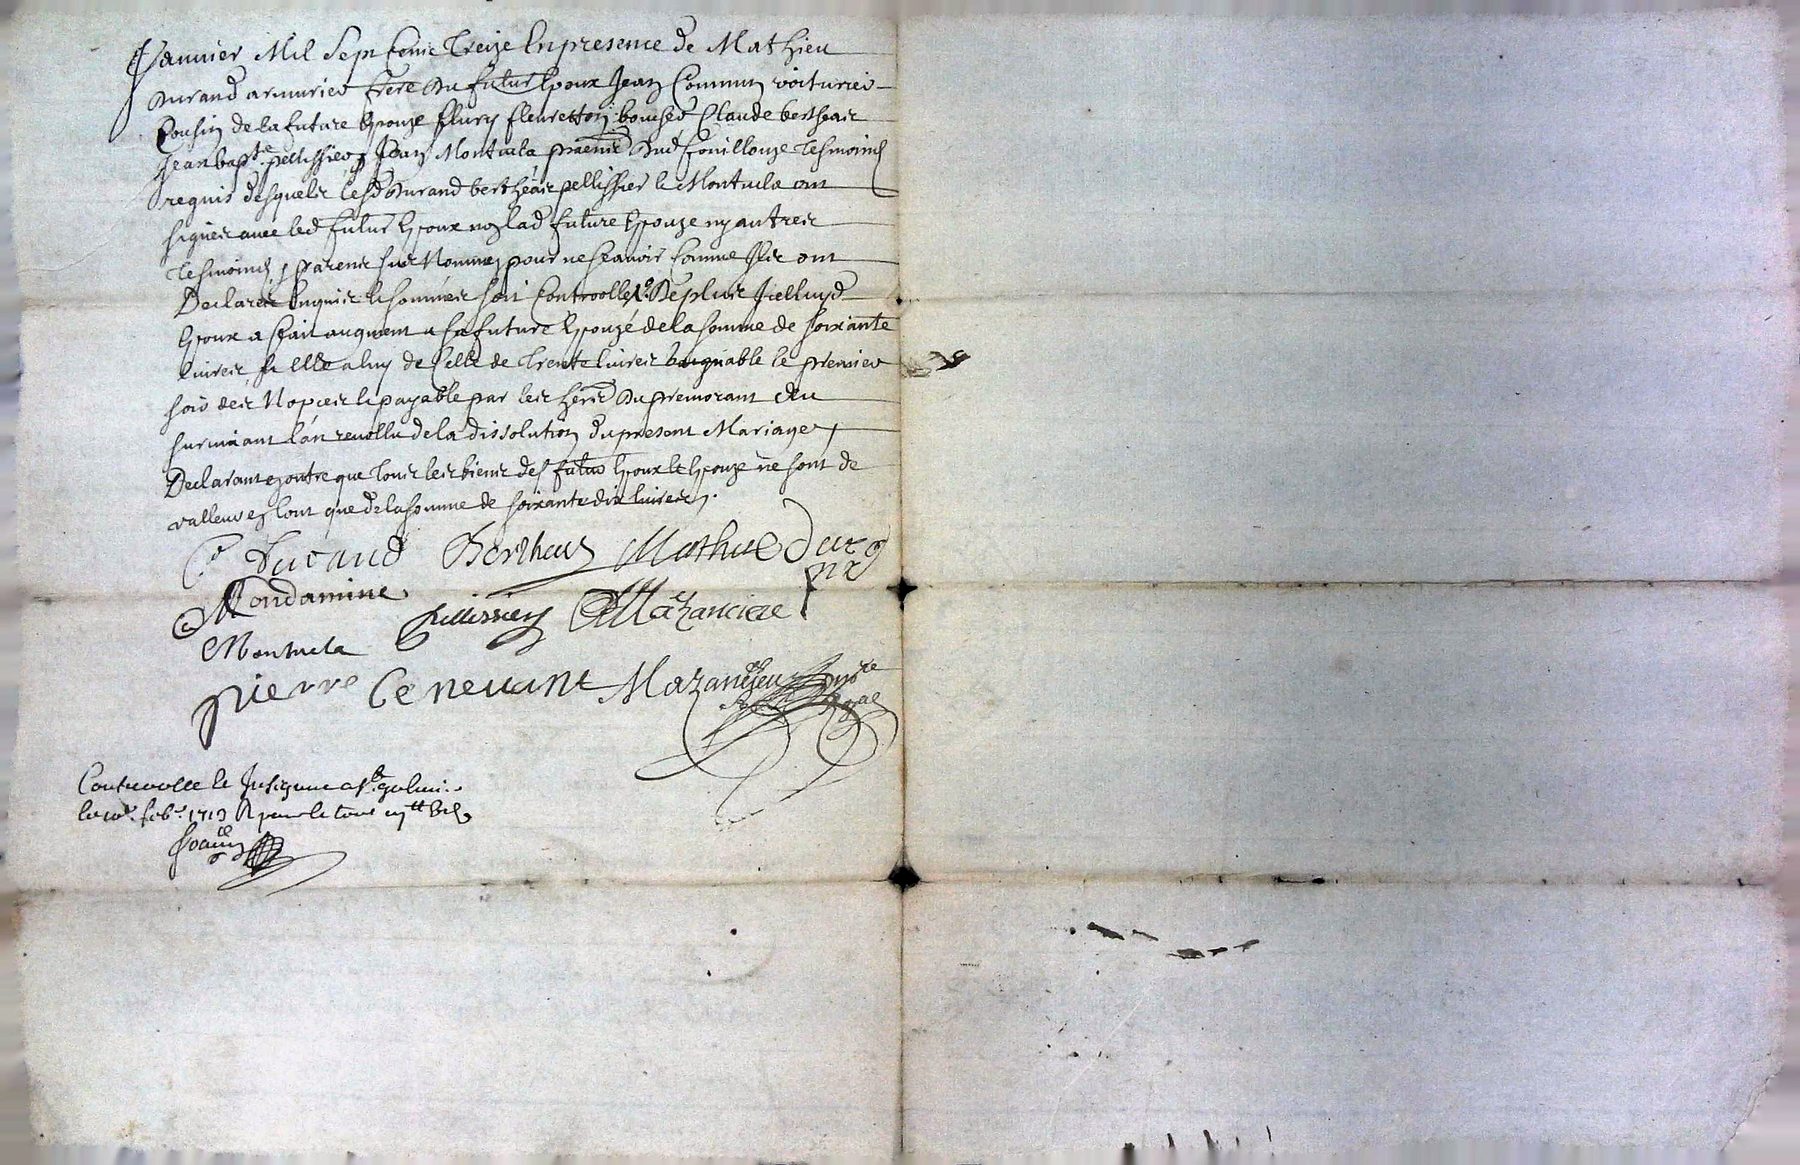 Janvier Mil Sept Cents Treize En presence de Mathieu
Durand armurier frere du futur Espoux Jean Commun voiturier
Cousin de la future Espouze fleury fleuretton boucher Claude bertheas
Jean bapte pellissier & Jean Montuela dud fouillouze tesmoins
requis desquels lesd Durand bertheas pellissier & Montuela ont
signes avec led futur Espoux non lad future Espouze ny autres
tesmoins & parens sus Nommes pour ne scavoir comme Ils ont
Declares Enquis & sommes soit Controollé De plus Icelluyd
Espoux a fait augment a sa future Espouzé de la somme de soixante
livres & Elle a luy de Celle de trente livres gagnable le premier
soir des Nopces & payable par les hers du premorant au
survivant l'an revollu de la dissolution du present Mariage
Declarant outre que tous les biens desd futur Espoux & Espouze ne sont de
valleur en tout que de la somme de soixante dix livres
Durand Bertheas Mathieu Durand
Mondamine
Pellissier Mazancieu
Montuela
pierre Ce nevant Mazancieu nore
Royal
Controolle & Insignue a St galmi
le febr 1713 R pour le tout